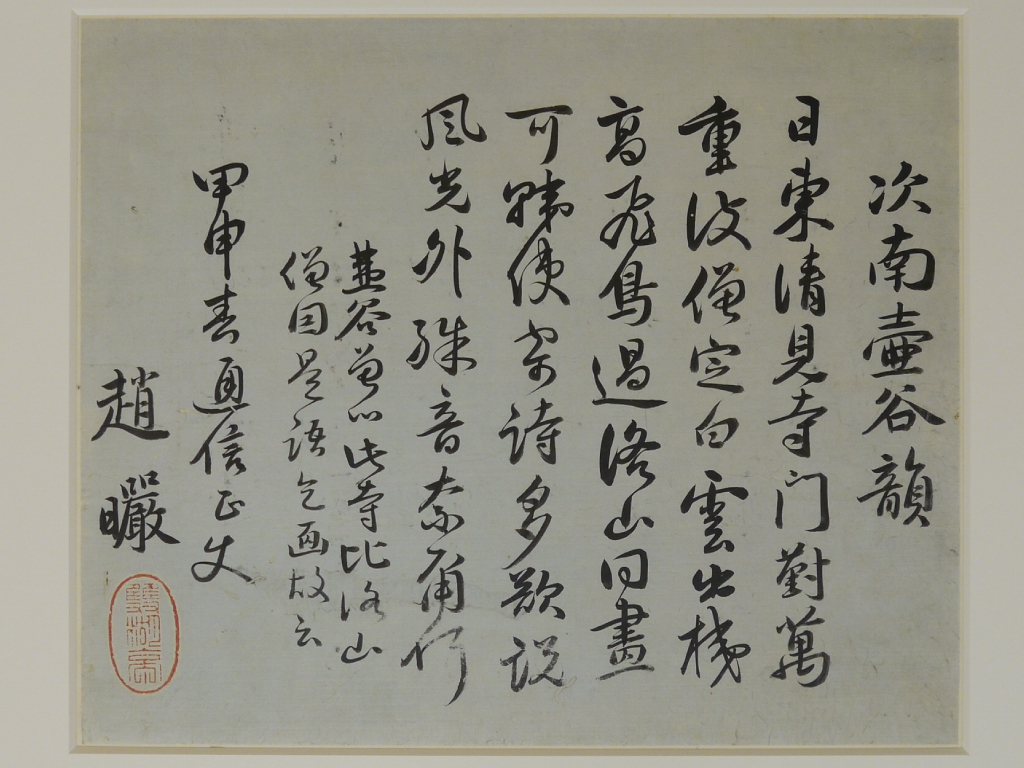 次南壷谷韻
日東清見寺门對萬
重波僧定白雲出棧
高飛鳥過洛山同畫
可歸使詩多欲説
風光外殊音奈爾何
壷谷曾以此寺比洛山
僧因是語乞画故云
甲申春通信正使
趙曮